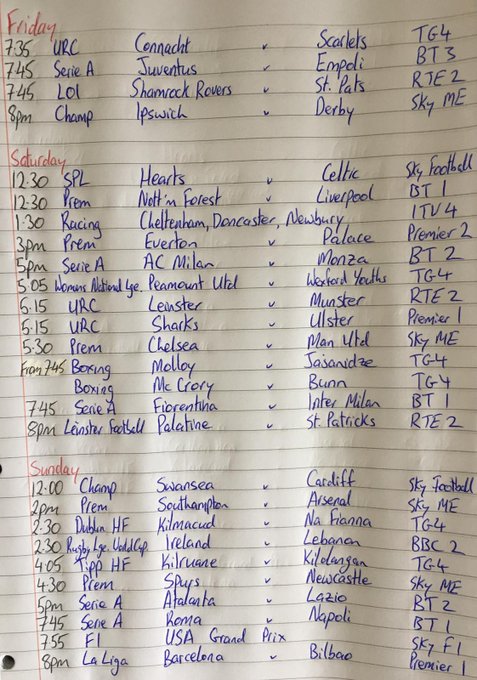 Friday
7.35 URC Connacht v Scarlets TG4
7.45 Serie A Juventus v Empoli BT 3
7.45 LOI Shamrock Rovers v St. Pats RTE 2
8pm Champ Ipswich v Derby Sky ME
Saturday
12.30 SPL Hearts v Celtic Sky Football
12.30 Prem Nott'm Forest v Liverpool BT 1
1.30 Racing Cheltenham, Doncaster, Newbury ITV 4
3pm Prem Everton v Palace Premier 2
5pm Serie A AC Milan v Monza BT 2
5.05 Womans National Lge. Peamount Utd v Wexford Youths TG4
5.15 URC Leinster v Munster RTE 2
5.15 URC Sharks v Ulster Premier 1
5.30 Prem Chelsea v Man Utd Sky ME
From 7.45 Boxing Molloy v Jaianidze TG4
Boxing Mc Crory v Bunn TG4
7.45 Serie A Fiorentina v Inter Milan BT 1
8pm Leinster Football Palatine v St. Patricks RTE 2
Sunday
12.00 Champ Swansea v Cardiff Sky Football
2pm Prem Southampton v Arsenal Sky ME
2.30 Dublin HF Kilmacud v Na Fianna TG4
2.30 Rugby Lge. World Cup Ireland v Lebanon BBC 2
4.05 Tipp HF Kilruane v Kiladangan TG4
4.30 Prem Spurs v Newcastle Sky ME
5pm Serie A Atalanta v Lazio BT 2
7.45 Serie A Roma v Napoli BT 1
7.55 F1 USA Grand Prix Sky F1
8pm La Liga Barcelona v Bilbao Premier 1